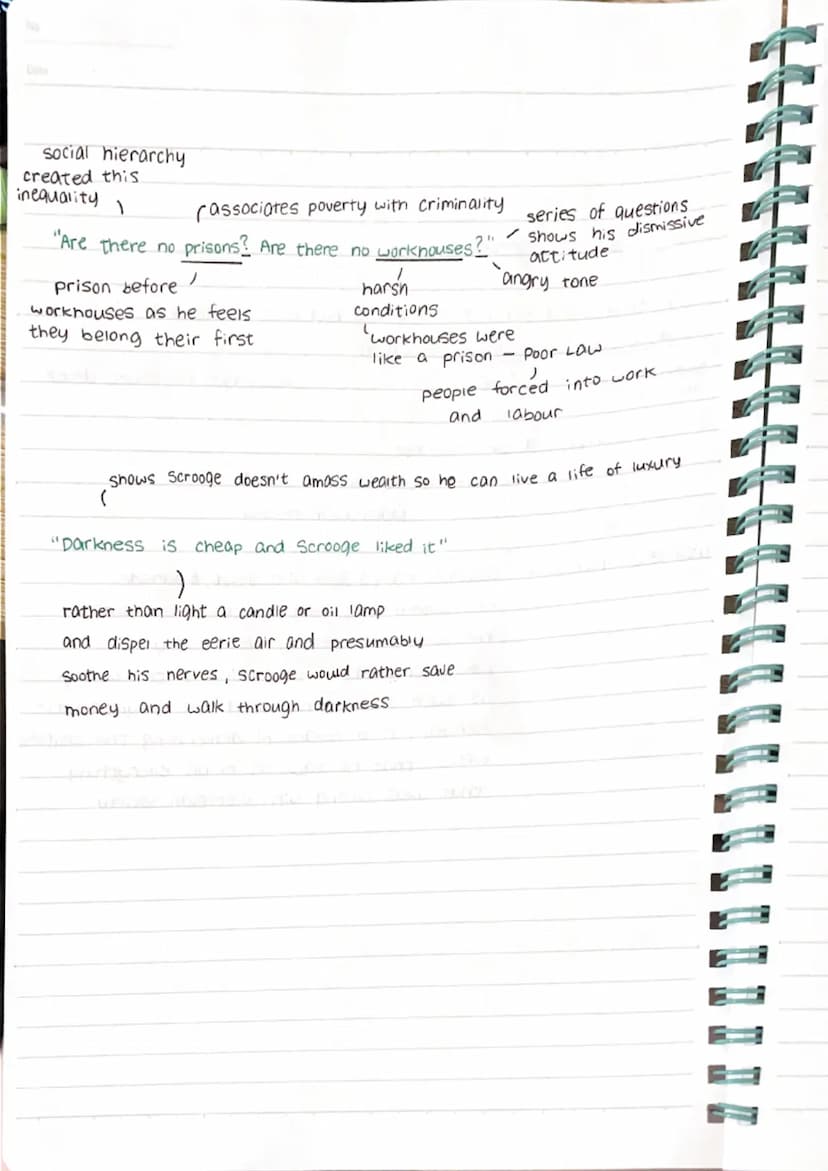 No
Date
social hierarchy
created this
inequality
associates poverty with criminality
series of questions
shows his dismissive
attitude
"Are there no prisons? Are there no workhouses?"
angry tone
prison before
workhouses as he feels
they belong their first
harsh
conditions
workhouses were
like a prison – Poor Law
people forced into work
and labour
shows Scrooge doesn't amass wealth so he can live a life of luxury
"Darkness is cheap and Scrooge liked it"
rather than light a candle or oil lamp
and dispel the eerie air and presumably
soothe his nerves, Scrooge would rather save
money and walk through darkness